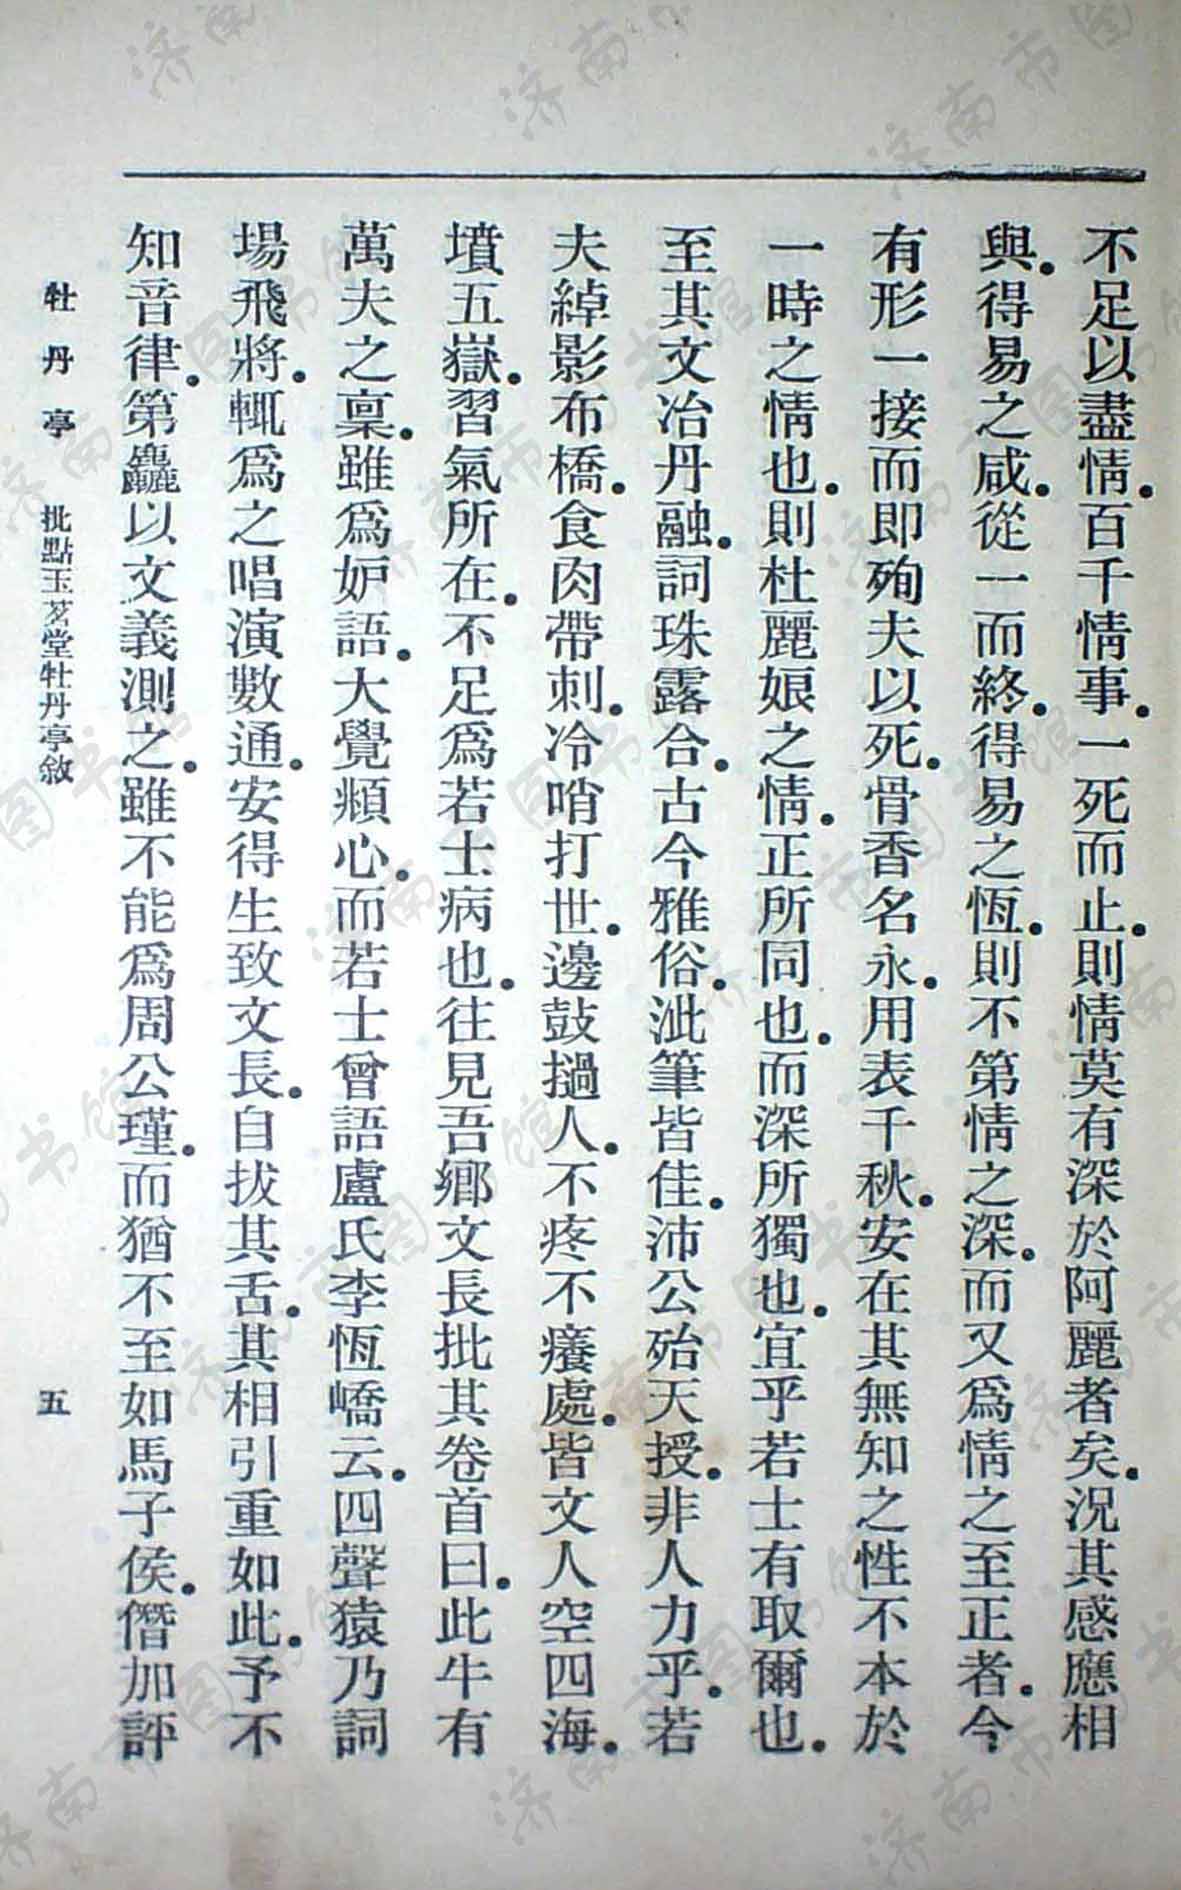 不足以盡情。百千情事。一死而止。則情莫有深於阿麗者矣。況其感應相
與。得易之咸。從一而終。得易之恆。則不第情之深。而又爲情之至正者。今
有形一接而即殉夫以死。骨香名永。用表千秋。安在其無知之性不本於
一時之情也。則杜麗娘之情。正所同也。而深所獨也。宜乎若士有取爾也。
至其文冶丹融。詞珠露合。古今雅俗。泚筆皆佳。沛公殆天授。非人力乎。若
夫綽影布橋。食肉帶刺。冷哨打世。邊鼓撾人。不疼不癢處。皆文人空四海。
墳五嶽。習氣所在。不足爲若士病也。往見吾鄉文長批其卷首曰。此牛有
萬夫之稟。雖爲妒語。大覺頫心。而若士曾語盧氏李恆嶠云。四聲猿乃詞
場飛將。輒爲之唱演數通。安得生致文長。自拔其舌。其相引重如此。予不
知音律。第麤以文義測之。雖不能爲周公瑾。而猶不至如馬子侯。僭加評
牡丹亭 批點玉茗堂牡丹亭敘 五
濟南市图书馆